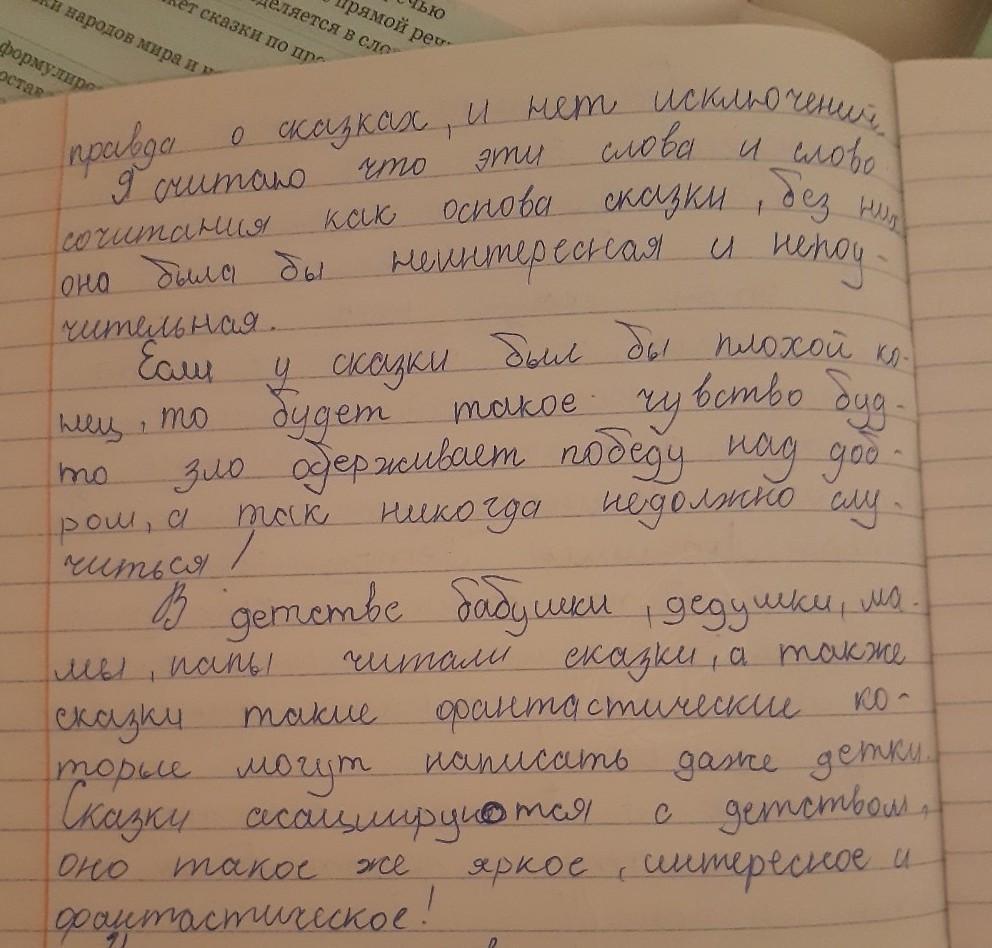 речью
прямой реч
деляется в сло
ки народов мира и
жет сказки по пр
формулиро
остав
правда о сказках, и нет исключений.
Я считаю что эти слова и слово
сочитания как основа сказки, без них
она была бы неинтересная и непоу-
чительная.
Если у сказки был бы плохой ко-
нец, то будет такое чувство буд-
то зло одерживает победу над доб-
ром, а так никогда недолжно слу-
читься!
В детстве бабушки, дедушки, ма-
мы, папы читали сказки, а также
сказки такие фантастические ко-
торые могут написать даже детки.
Сказки асацируются с детством,
оно такое же яркое, интересное и
фантастическое!